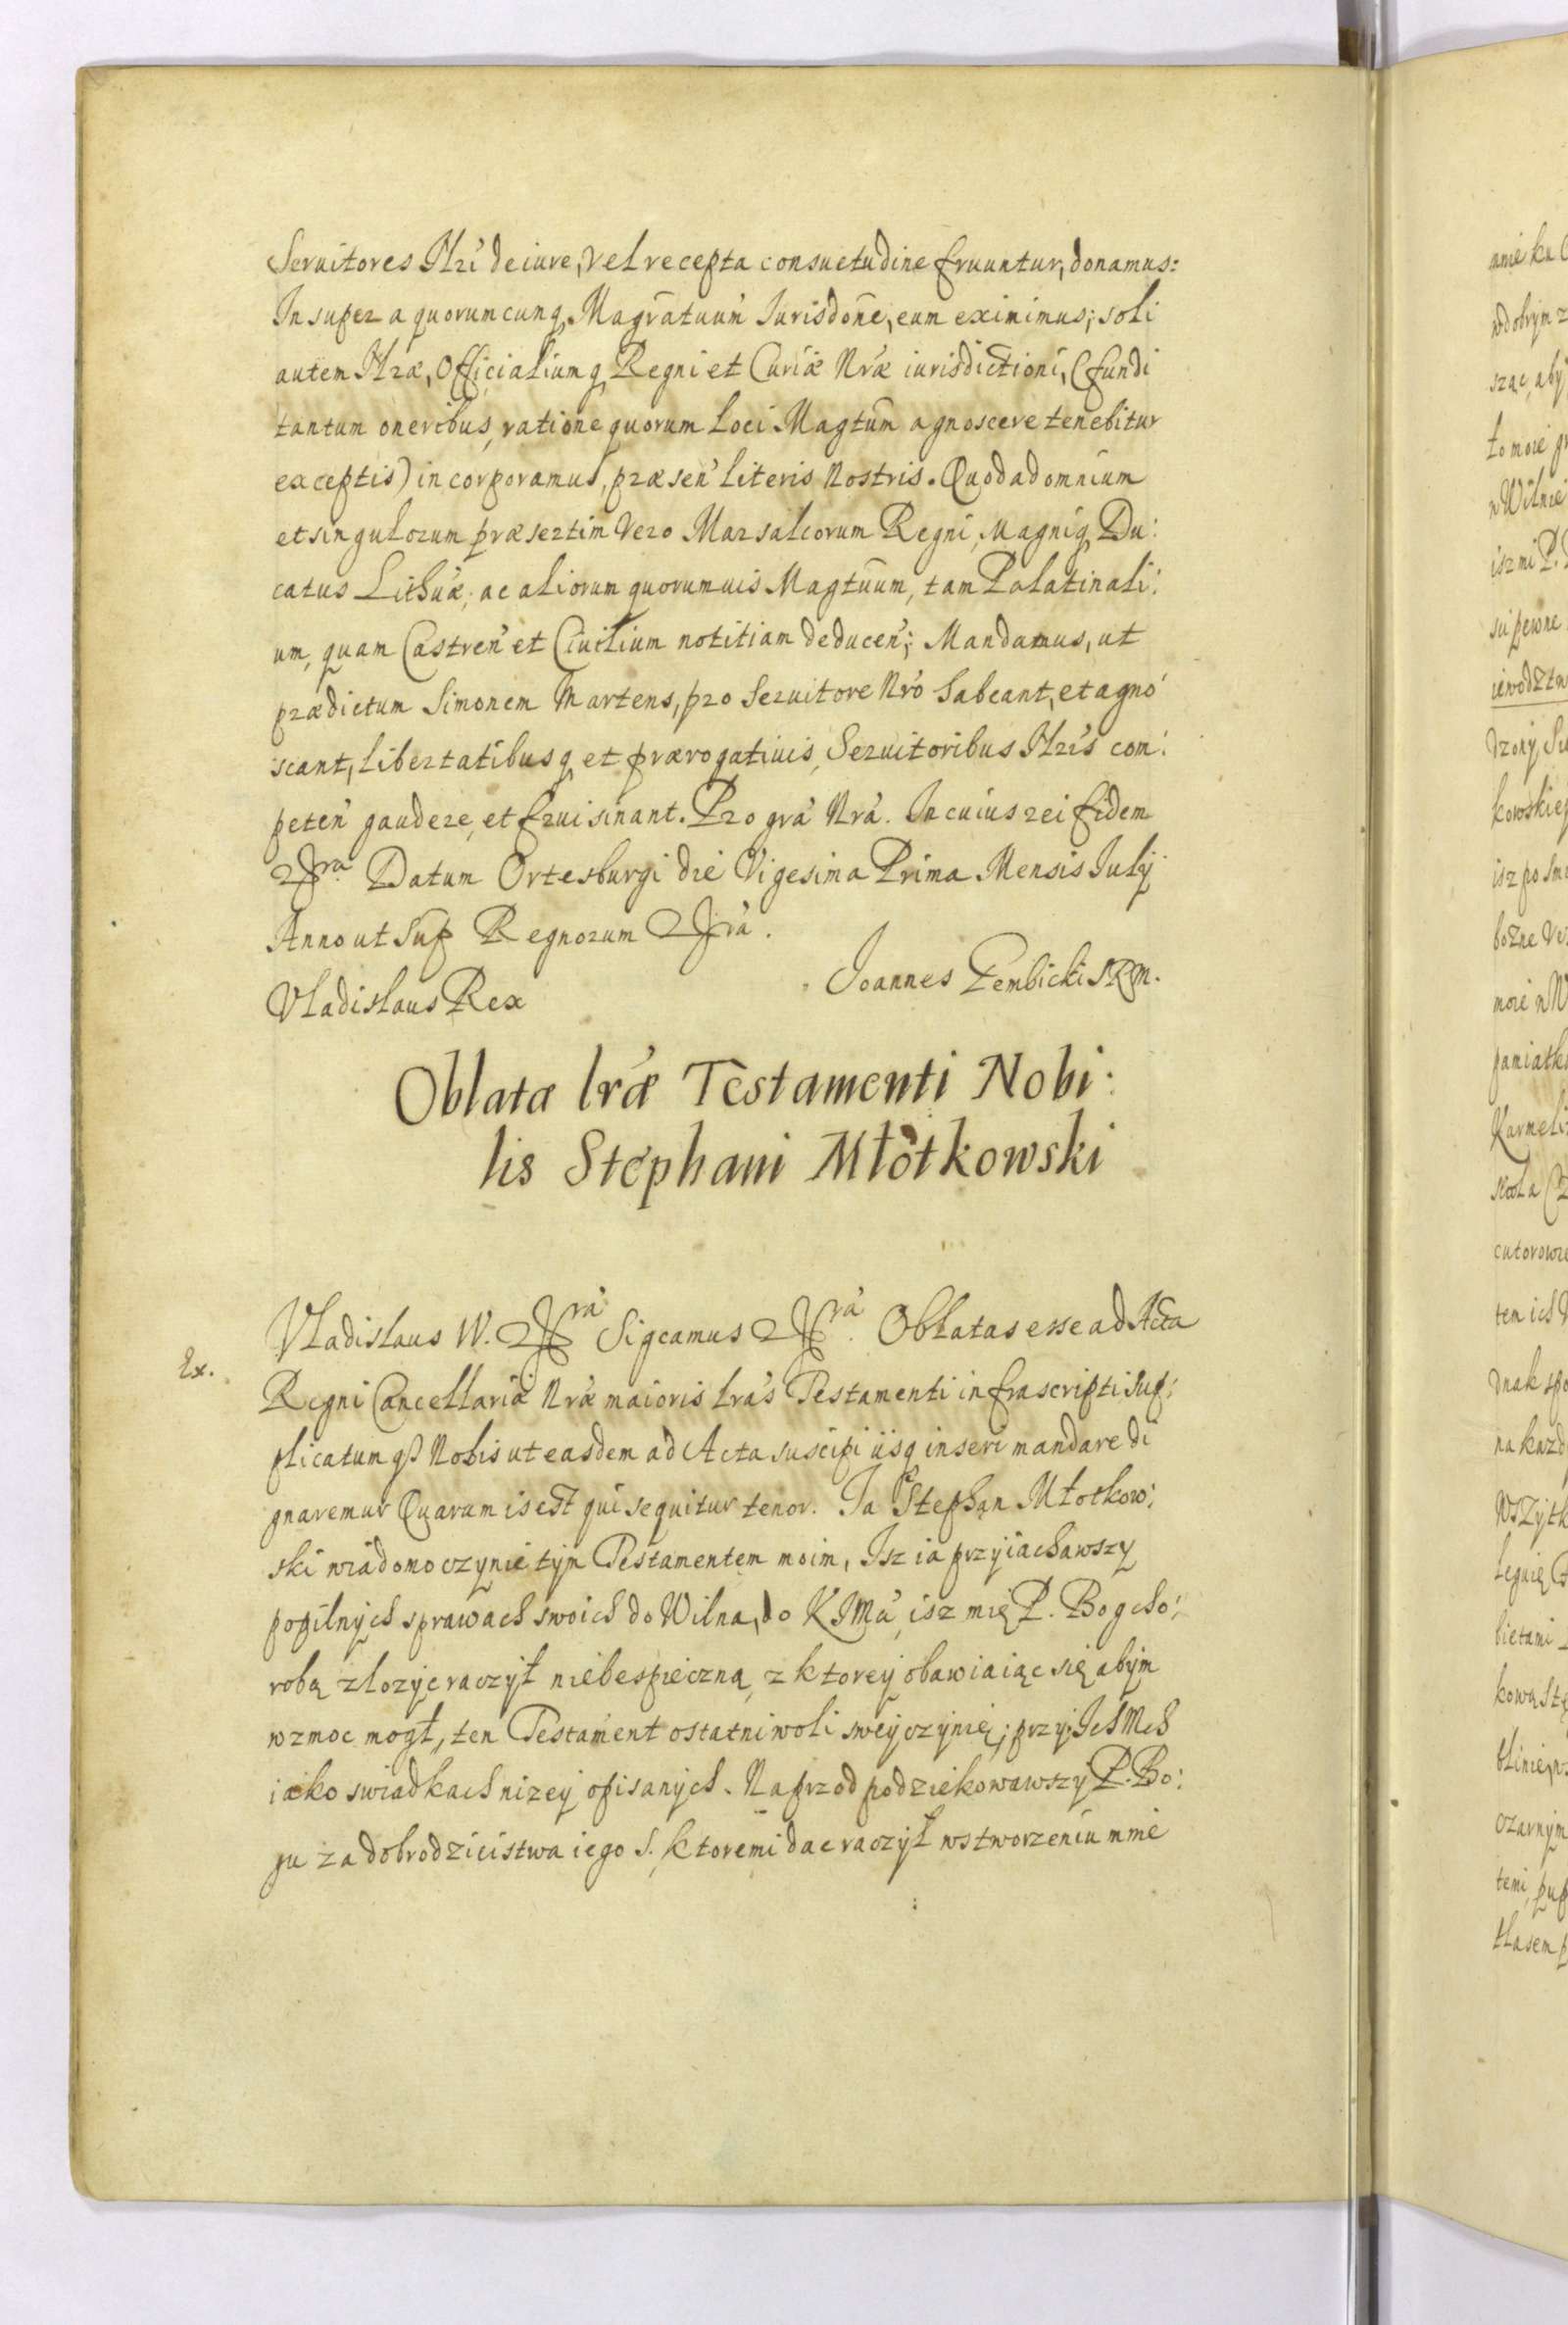 Seruitores Nri de iure, vel recepta consuetudine fruuntur, donamus:
Insuper a quorumcunq Magratuum Iurisdone, eum eximimus; soli
autem Nræ, Officialiumq Regni et Curiæ Nræ iurisdictioni, (fundi
tantum oneribus, ratione quorum Loci Magtum agnoscere tenebitur
exceptis) incorporamus, præsen literis Nostris. Quod ad omnium
et singulorum præsertim vero Marsalcorum Regni, Magniq Du:
catus Lithuæ, ac aliorum quorumuis Magtuum, tam Palatinali:
um, quam Castren et Ciuilium notitiam deducen; Mandamus, ut
prædictum Simonem Martens, pro Seruitore Nro habeant, et agno:
scant, libertatibusq et prærogatiuis, Seruitoribus Nris com:
peten gaudere, et frui sinant. Pro gra Nra. In cuius rei fidem
Datum Ortesburgi die Vigesima Prima Mensis Iulij
Anno ut sup Regnorum
Vladislaus Rex
Joannes Gembicki SRM.
Oblatæ lræ Testamenti Nobi:
lis Stephani Młotkowski
Ex.
Vladislaus IV. Sigcamus Oblatas esse ad Acta
Regni Cancellariæ Nræ maioris lras Testamenti infrascripti, Sup:
plicatumq Nobis ut easdem ad Acta suscipi iisq inseri mandare di
gnaremur Quarum is est qui sequitur tenor. Ja Stephan Młotkow:
ski wiadomo czynie tym Testamentem moim, Isz ia przyiachawszy
popilnych sprawach swoich do Wilna, do KJMci, isz mię P. Bog cho:
robą zlozyc raczył niebespieczną, z ktorey obawiaiąc się abym
wzmoc mogł, ten Testament ostatni woli swey czynię; przy Ich Mch
iako swiadkach nizey opisanych. Naprzod podziekowawszy P. Bo:
gu za dobrodzieistwa iego S. ktoremi dac raczył w stworzeniu mnie